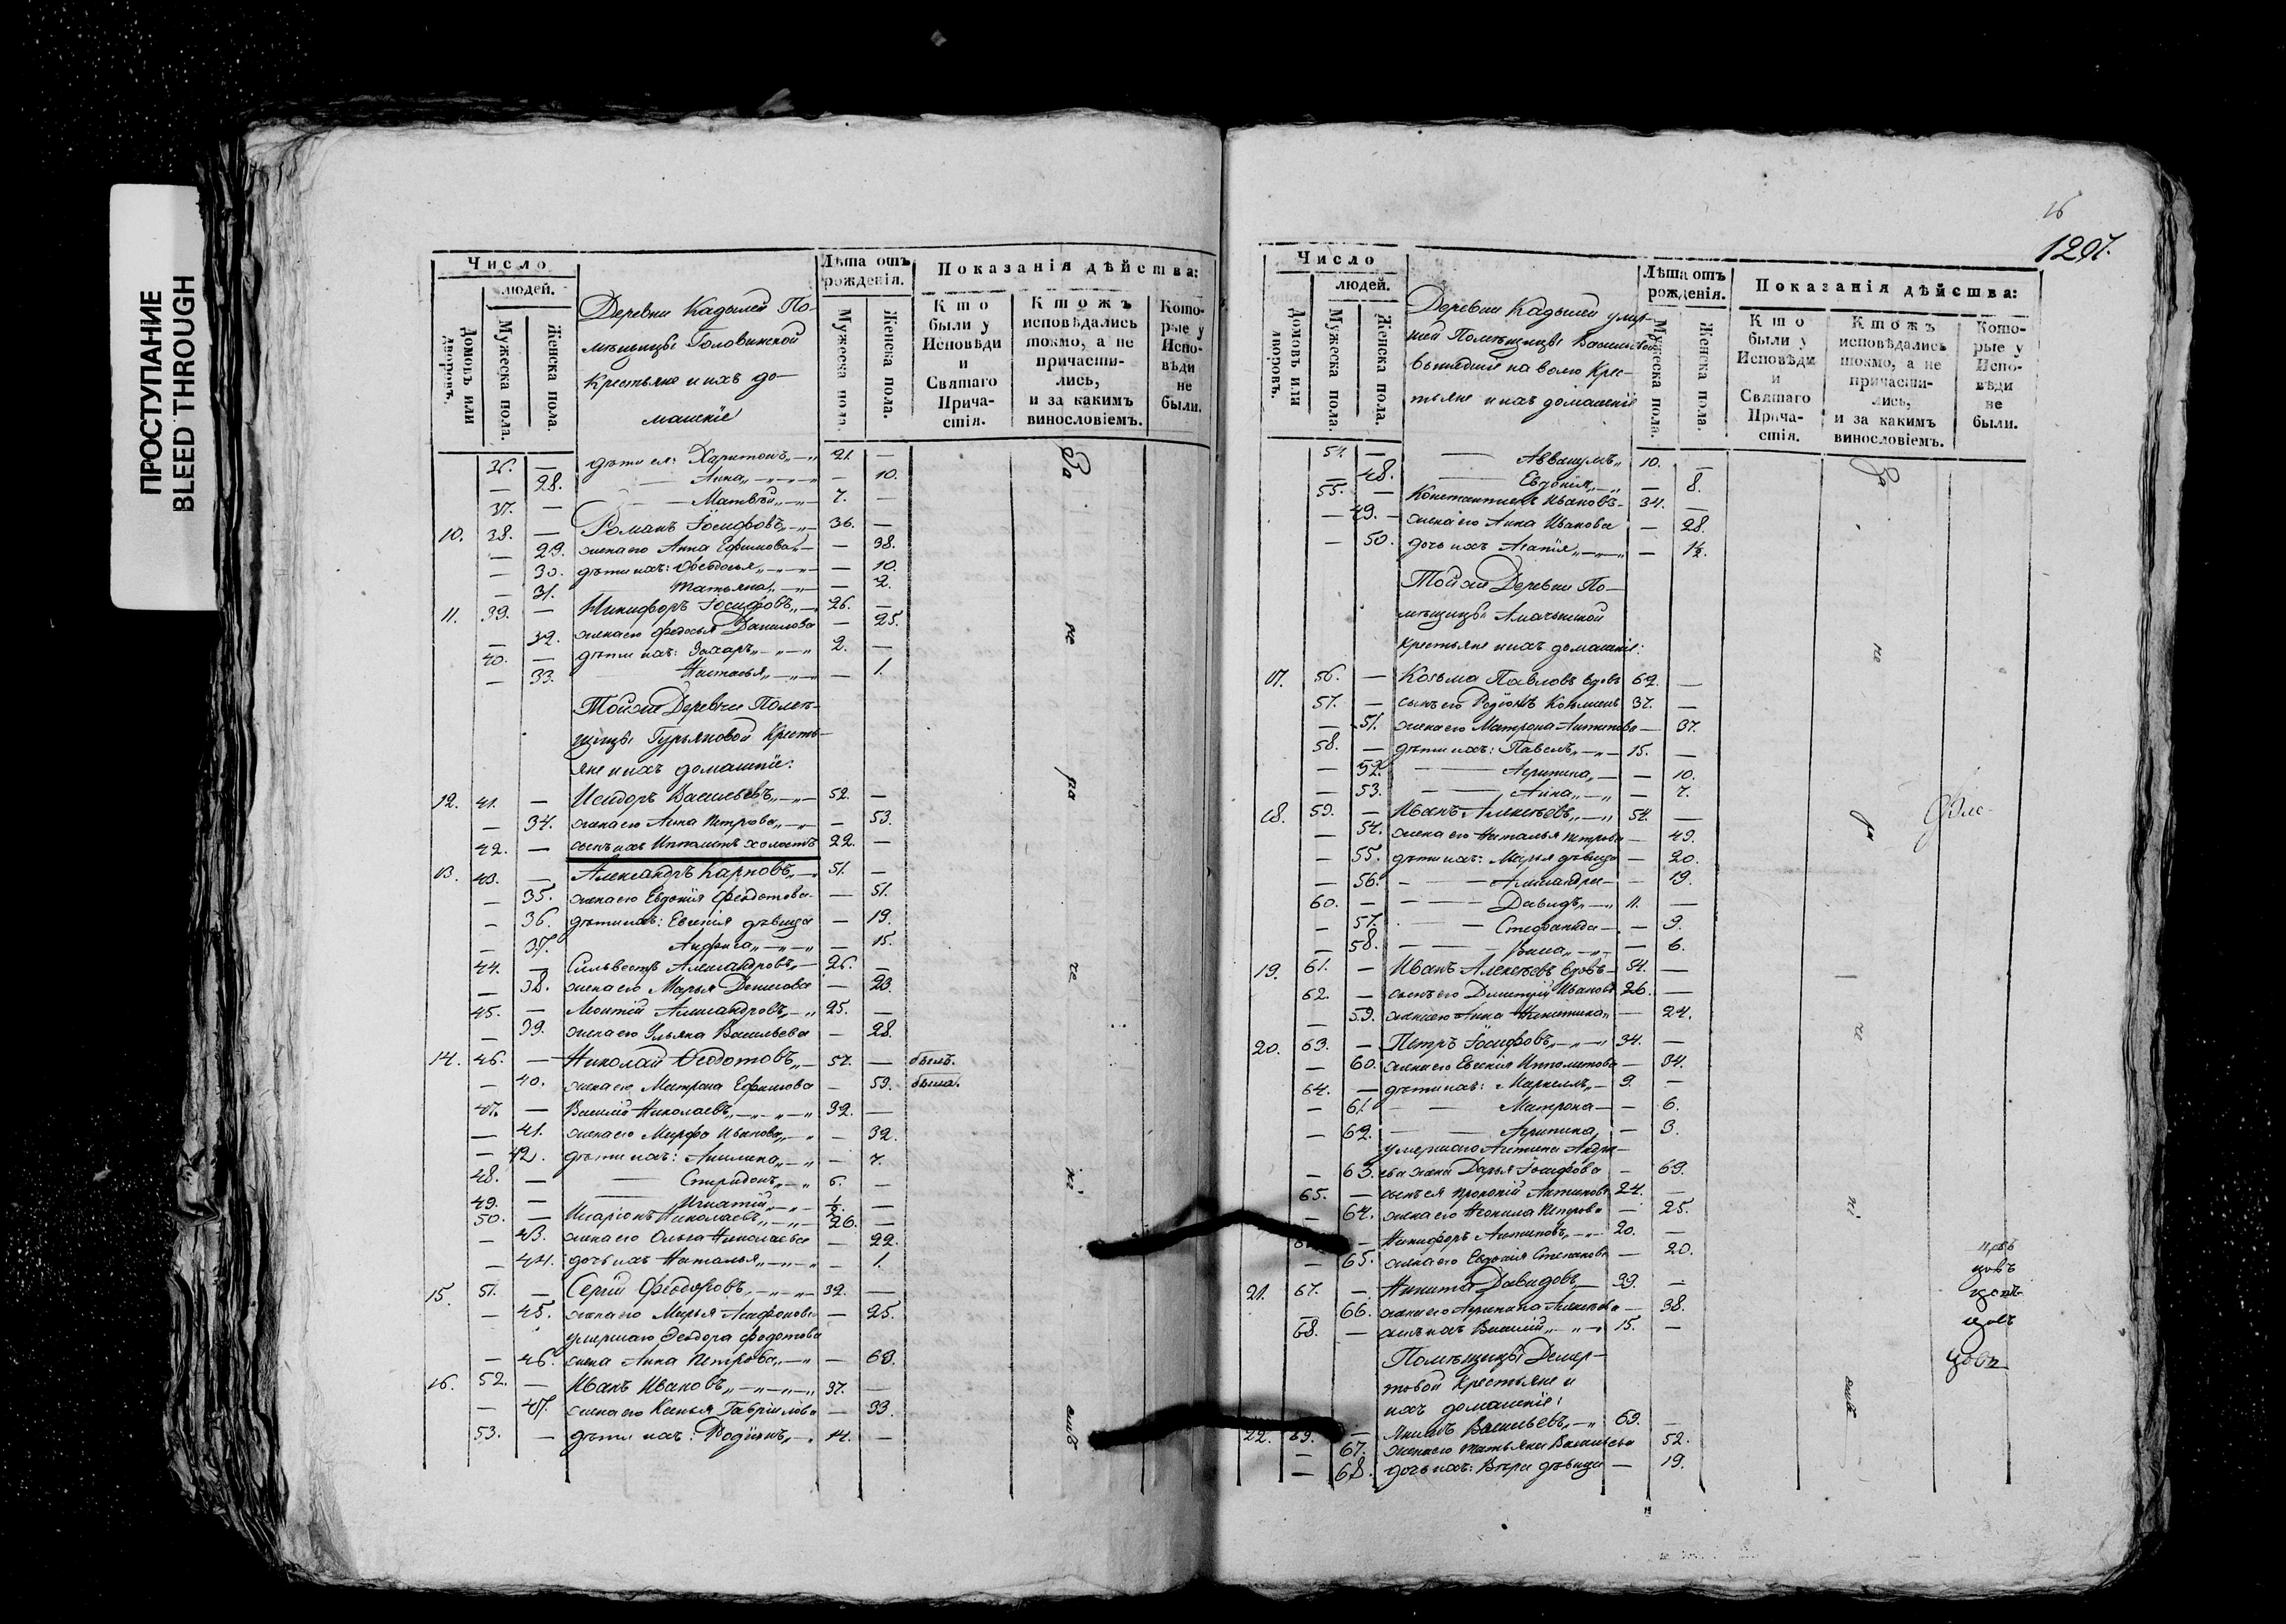 ПРОСТУПАНИЕ
BLEED THROUGH
Число
людей.
Домовъ или дворовъ.
Мужеска пола.
Женска пола.
Деревни Кадымей По-
мѣщицы Головинской
Крестьяне и ихъ до-
машніе
Лѣта отъ рожденія.
Мужеска пола.
Женска пола.
Показанія дѣйства:
Кто были у Исповѣди и Святаго Прича-стія.
Ктожъ исповѣдались токмо, а не причасти-лись, и за какимъ винословіемъ.
Кото-рые у Испо-вѣди не были.
36. — дѣти ея: Харитонъ 21. —
— 28. Анна — 10.
37. — Матвѣй 7. —
10. 38. — Романъ Іосифовъ 36. —
— 29. жена его Анна Ефимова — 38.
— 30. дѣти ихъ: Ѳеодосья — 10.
— 31. Татьяна — 2.
11. 39. — Никифоръ Іосифовъ 26. —
— 32. жена его Федосья Данилова — 25.
40. — дѣти ихъ: Захаръ 2. —
— 33. Настасья — 1.
Той же Деревни Помѣ-
щицы Гурьяновой Кресть-
яне и ихъ домашніе:
12. 41. — Исидоръ Васильевъ 52. —
— 34. жена его Анна Петрова — 53.
42. — сынъ ихъ Ипполитъ холостъ 22. —
13. 43. — Александръ Карповъ 51. —
— 35. жена его Евдокія Феодотова — 51.
— 36. дѣти ихъ: Евгенія дѣвица — 19.
— 37. Анфиса — 15.
44. — Сильвестръ Александровъ 26. —
— 38. жена его Марья Денисова — 23.
45. — Леонтій Александровъ 25. —
— 39. жена его Ульяна Васильева — 28.
14. 46. — Николай Ѳеодотовъ 57. — былъ.
— 40. жена его Матрона Ефимова — 59. была.
47. — Василій Николаевъ 32. —
— 41. жена его Марфа Иванова — 32.
— 42. дѣти ихъ: Акилина — 7.
48. — Спиридонъ 6. —
49. — Игнатій ½. —
50. — Иларіонъ Николаевъ 26. —
— 43. жена его Ольга Николаева — 22.
— 44. дочь ихъ Наталья — 1.
15. 51. — Сергій Феодоровъ 32. —
— 45. жена его Марья Агафонова — 25.
умершаго Ѳеодора Федотова
— 46. жена Анна Петрова — 68.
16. 52. — Иванъ Ивановъ 37. —
— 47. жена его Ксенья Гавріилова — 33.
53. — дѣти ихъ: Родіонъ 14. —
За
не
ра
не
ні
емъ
16
1297.
Число
людей.
Домовъ или дворовъ.
Мужеска пола.
Женска пола.
Деревни Кадымей умер-
шей Помѣщицы Васильевой
вышедшіе на волю Крес-
тьяне и ихъ домашніе
Лѣта отъ рожденія.
Мужеска пола.
Женска пола.
Показанія дѣйства:
Кто были у Исповѣди и Святаго Прича-стія.
Ктожъ исповѣдались токмо, а не причасти-лись, и за какимъ винословіемъ.
Кото-рые у Испо-вѣди не были.
54. — Аввакумъ 10. —
— 48. Евдокія — 8.
55. — Константинъ Ивановъ 34. —
— 49. жена его Анна Иванова — 28.
— 50. дочь ихъ Агапія — 1½.
Той же Деревни По-
мѣщицы
крестьяне и ихъ домашніе:
17. 56. — Козьма Павловъ вдовъ 62. —
57. — сынъ его Родіонъ Козьминъ 37. —
— 51. жена его Матрона Антипова — 37.
58. — дѣти ихъ: Павелъ 15. —
— 52. Агрипина — 10.
— 53. Анна — 7.
18. 59. — Иванъ Алексѣевъ 54. —
— 54. жена его Наталья Петрова — 49.
— 55. дѣти ихъ: Марья дѣвица — 20.
— 56. Александра — 19.
60. — Давидъ 11. —
— 57. Стефанида — 9.
— 58. — 6.
19. 61. — Иванъ Алексѣевъ вдовъ 54. —
62. — сынъ его Димитрій Ивановъ 26. —
— 59. жена его Анна Никитина — 24.
20. 63. — Петръ Іосифовъ 34. —
— 60. жена его Евгенія Ипполитова — 34.
64. — дѣти ихъ: Маркеллъ 9. —
— 61. Матрона — 6.
— 62. Агрипина — 3.
умершаго Антипа Андре-
— 63. ева жена Дарья Іосифова — 69.
65. — сынъ ея Прокопій Антиповъ 24. —
— 64. жена его Неонила Петрова — 25.
— Никифоръ Антиповъ 20. —
— 65. жена его Евдокія Степанова — 20.
21. 67. — Никита Давидовъ 39. —
— 66. жена его Агрипина Алексѣева — 38.
68. — сынъ ихъ Василій 15. —
Помѣщицы Демер-
товой Крестьяне и
ихъ домашніе:
22. 69. — Якимъ Васильевъ 69. —
— 67. жена его Татьяна Васильева 52.
— 68. дочь ихъ: Вѣра дѣвица — 19.
За
не
ра
не
ні
емъ